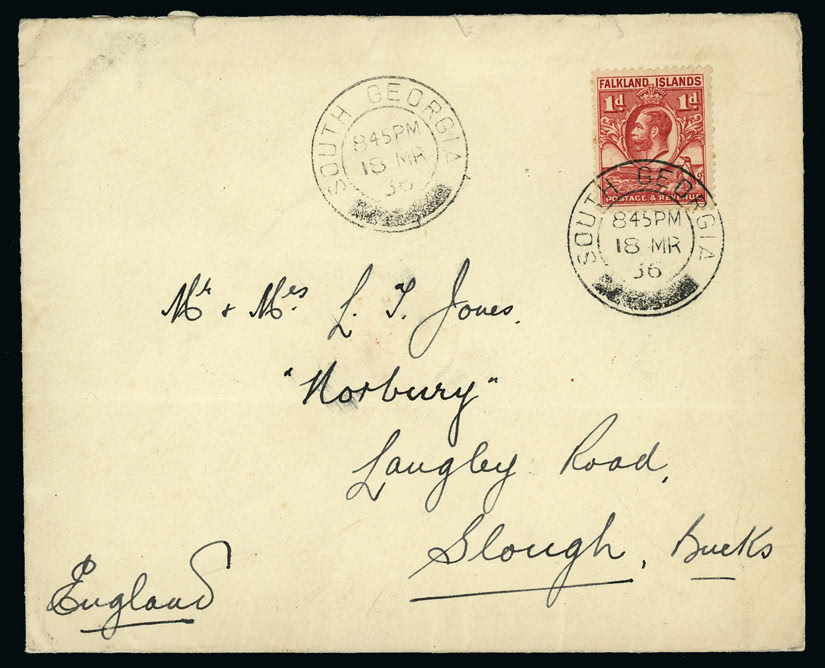 FALKLAND ISLANDS
1d 1d
POSTAGE & REVENUE
SOUTH GEORGIA
845PM
18 MR
36
SOUTH GEORGIA
845PM
18 MR
36
Mr & Mrs L. T. Jones.
"Norbury"
Langley Road,
Slough, Bucks
England